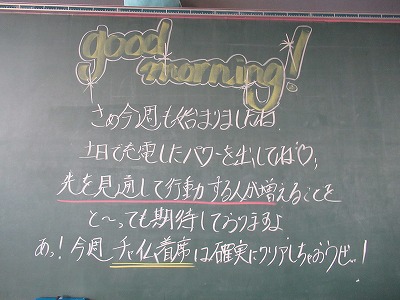 good
morning!
さぁ今週も始まりましたね
土日で充電したパワーを出してね♡,
先を見通して行動する人が増えることを
と〜っても期待しておりますよ
あっ!今週チャイム着席は確実にクリアしちゃおうぜ!